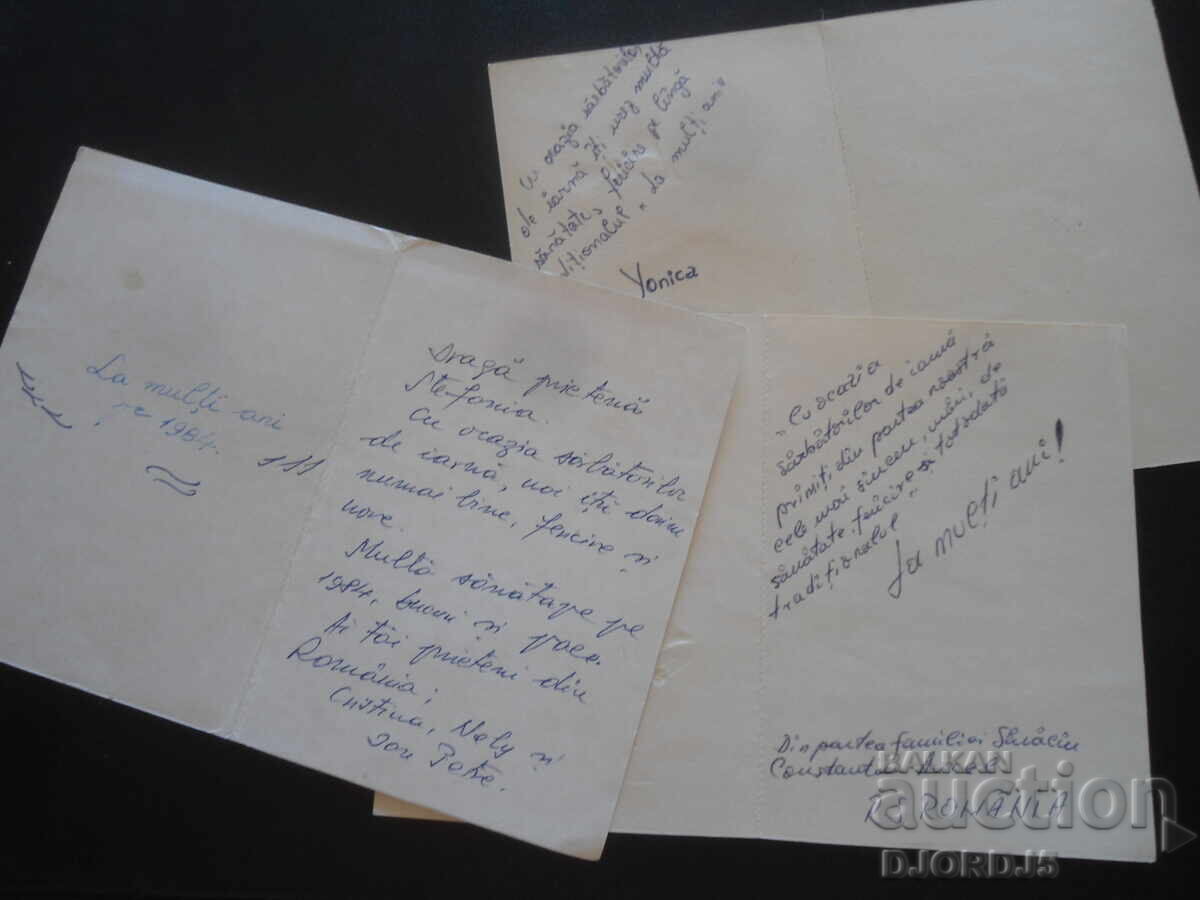 Cu ocazia sărbătorilor
de iarnă îți urez multă
sănătate, fericire pe lîngă
diționalul "La mulți ani"
Yonica
La mulți ani
pe 1984.
111
Dragă prietenă
Ștefania.
Cu ocazia sărbătorilor
de iarnă, noi îți dorim
numai bine, fericire și
Multă sănătape pe
1984, bucurii și pace.
Ai tăi prieteni din
România;
Cristina, Nely și
Ion Petre.
"Cu ocazia
sărbătorilor de iarnă
primiți din partea noastră
cele mai sincere, urări, de
sănătate-fericire și totodată
tradiționalul"
La mulți ani!
Din partea familiei
Constantin
R.S ROMANIA
BALKAN
auction
DJORDJ5